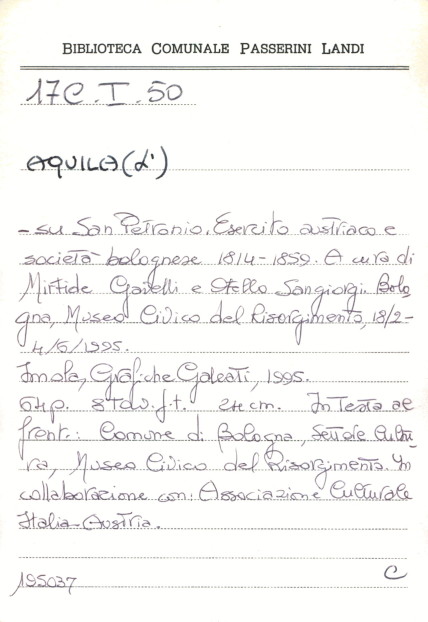 BIBLIOTECA COMUNALE PASSERINI LANDI
17C.I.50
AQUILA (L')
- su San Petronio. Esercito austriaco e
società bolognese 1814-1859. A cura di
Mirtide Gavelli e Otello Sangiorgi. Bolo
gna, Museo Civico del Risorgimento, 18/2-
4/6/1995.
Imola, Grafiche Galeati, 1995.
64p. 8 Tav. f.t. 24 cm. In testa al
front.: Comune di Bologna, Settore Cultu-
ra, Museo Civico del Risorgimento. In
collaborazione con: Associazione Culturale
Italia-Austria.
195037 C